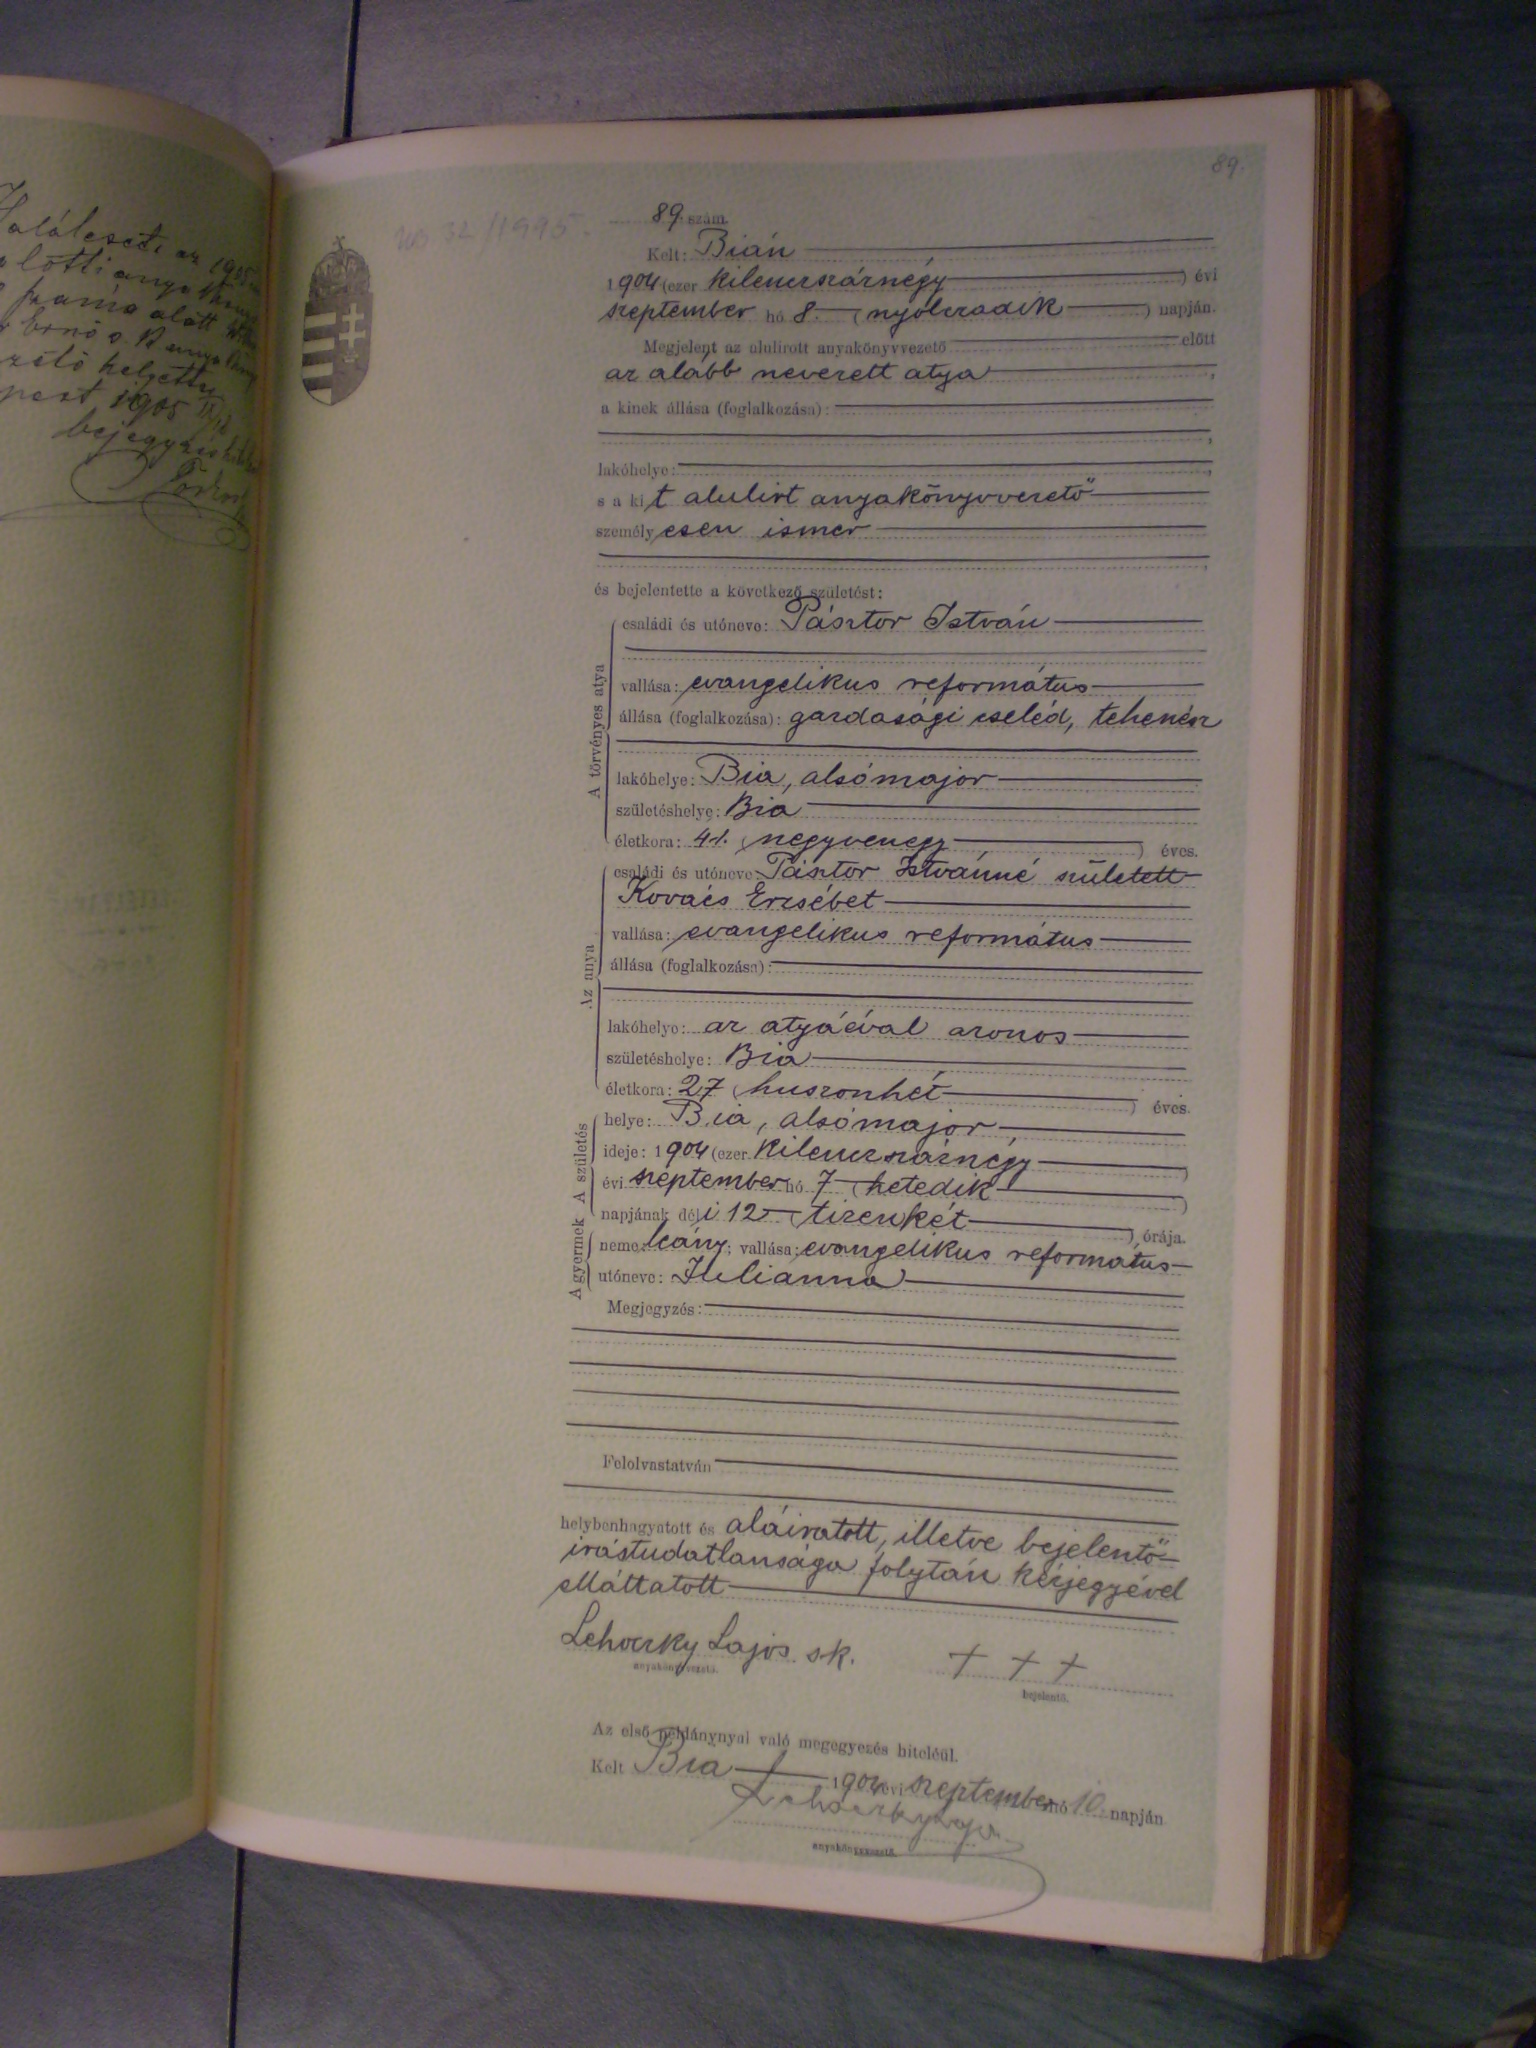 Haláleset az 1905
lotti anya
alatt
Ernő s.
helyett
pest 1905
bejegyzés
89.
32/1995.
89. szám.
Kelt: Bián
1904 (ezer kilenczszáznégy) évi
szeptember hó 8. (nyolczadik) napján.
Megjelent az alulirott anyakönyvvezető előtt
az alább nevezett atya,
a kinek állása (foglalkozása):
lakóhelye:
s a kit alulirt anyakönyvvezető
személyesen ismer
és bejelentette a következő születést:
A törvényes atya
családi és utóneve: Pásztor István
vallása: evangelikus református
állása (foglalkozása): gazdasági cseléd, tehenész
lakóhelye: Bia, alsómajor
születéshelye: Bia
életkora: 41. (negyvenegy) éves.
Az anya
családi és utóneve: Pásztor Istvánné született
Kovács Erzsébet
vallása: evangelikus református
állása (foglalkozása):
lakóhelye: az atyáéval azonos
születéshelye: Bia
életkora: 27 (huszonhét) éves.
A születés
helye: Bia, alsómajor
ideje: 1904 (ezer kilenczszáznégy)
évi szeptember hó 7 (hetedik)
napjának déli 12 (tizenkét) órája.
A gyermek
neme: leány; vallása: evangelikus református
utóneve: Julianna
Megjegyzés:
Felolvastatván
helybenhagyatott és aláiratott, illetve bejelentő
irástudatlansága folytán kézjegyével
elláttatott
Lehoczky Lajos sk. + + +
anyakönyvvezető. bejelentő.
Az első példánynyal való megegyezés hiteléül.
Kelt Bia 1904 évi szeptember hó 10. napján
Lehoczky Lajos
anyakönyvvezető.